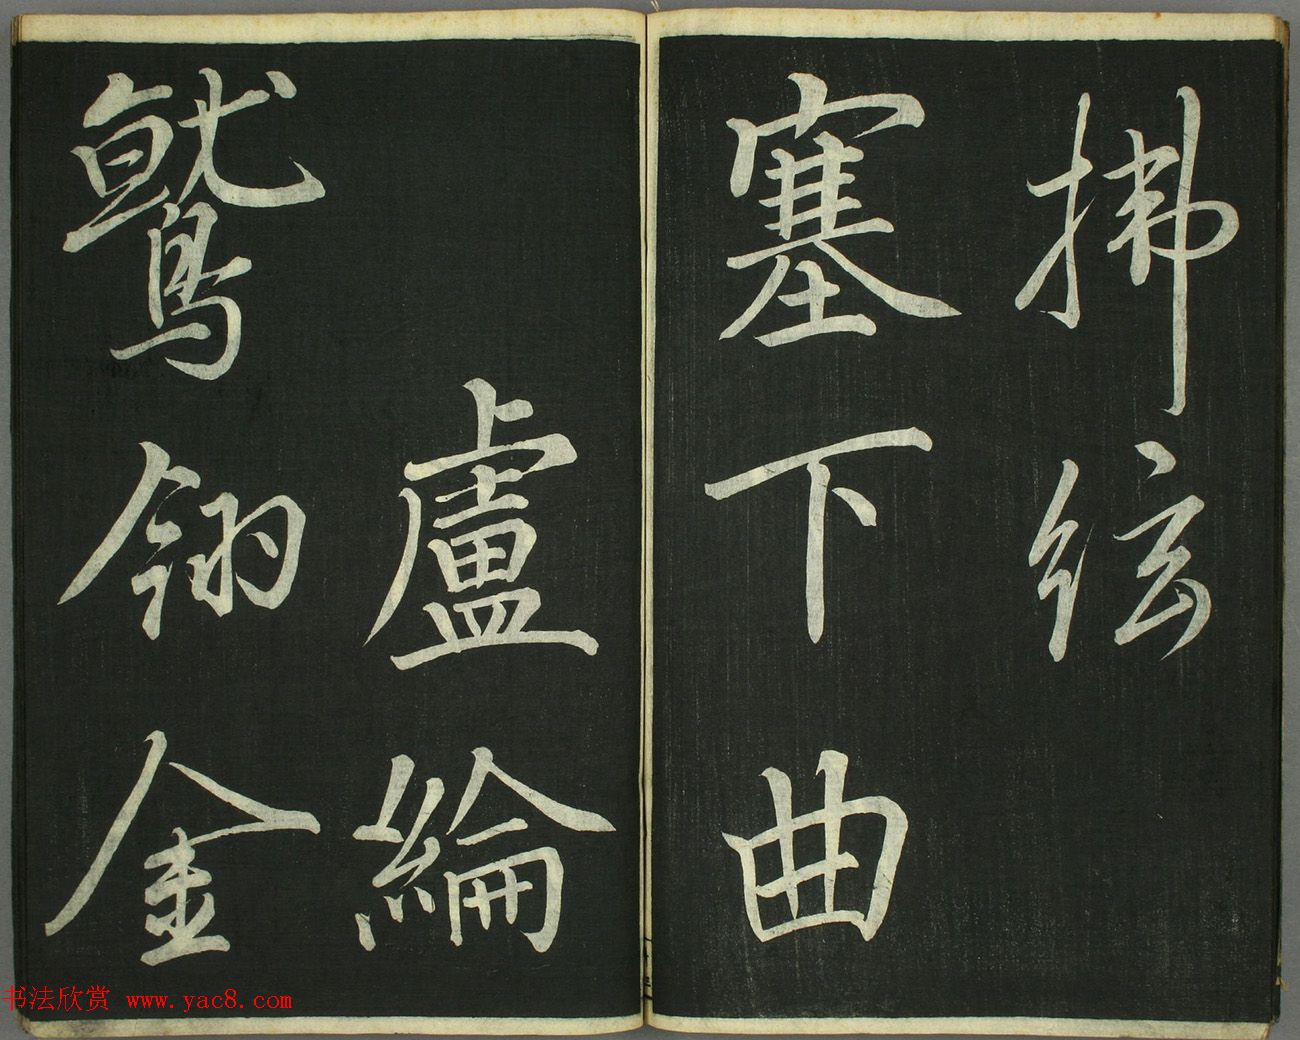 拂絃
塞下曲
盧綸
鷲翎金
书法欣赏 www.yac8.com